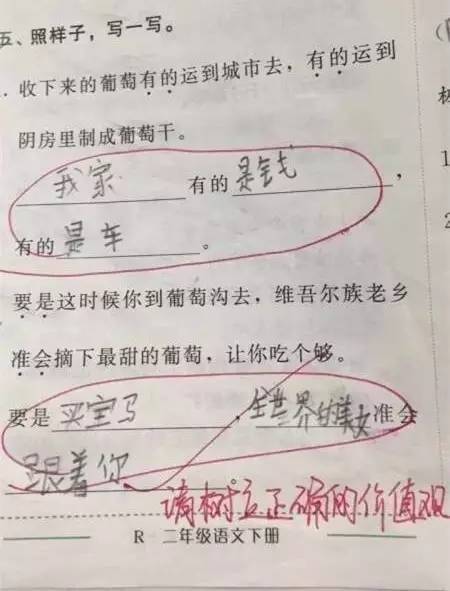 五、照样子，写一写。
. 收下来的葡萄有的运到城市去，有的运到
阴房里制成葡萄干。
我家 有的 是钱 ，
有的 是车 。
要是这时候你到葡萄沟去，维吾尔族老乡
准会摘下最甜的葡萄，让你吃个够。
要是 买宝马 ，全世界的美女 准会
跟着你
请树立正确的价值观
R 二年级语文下册
1
2